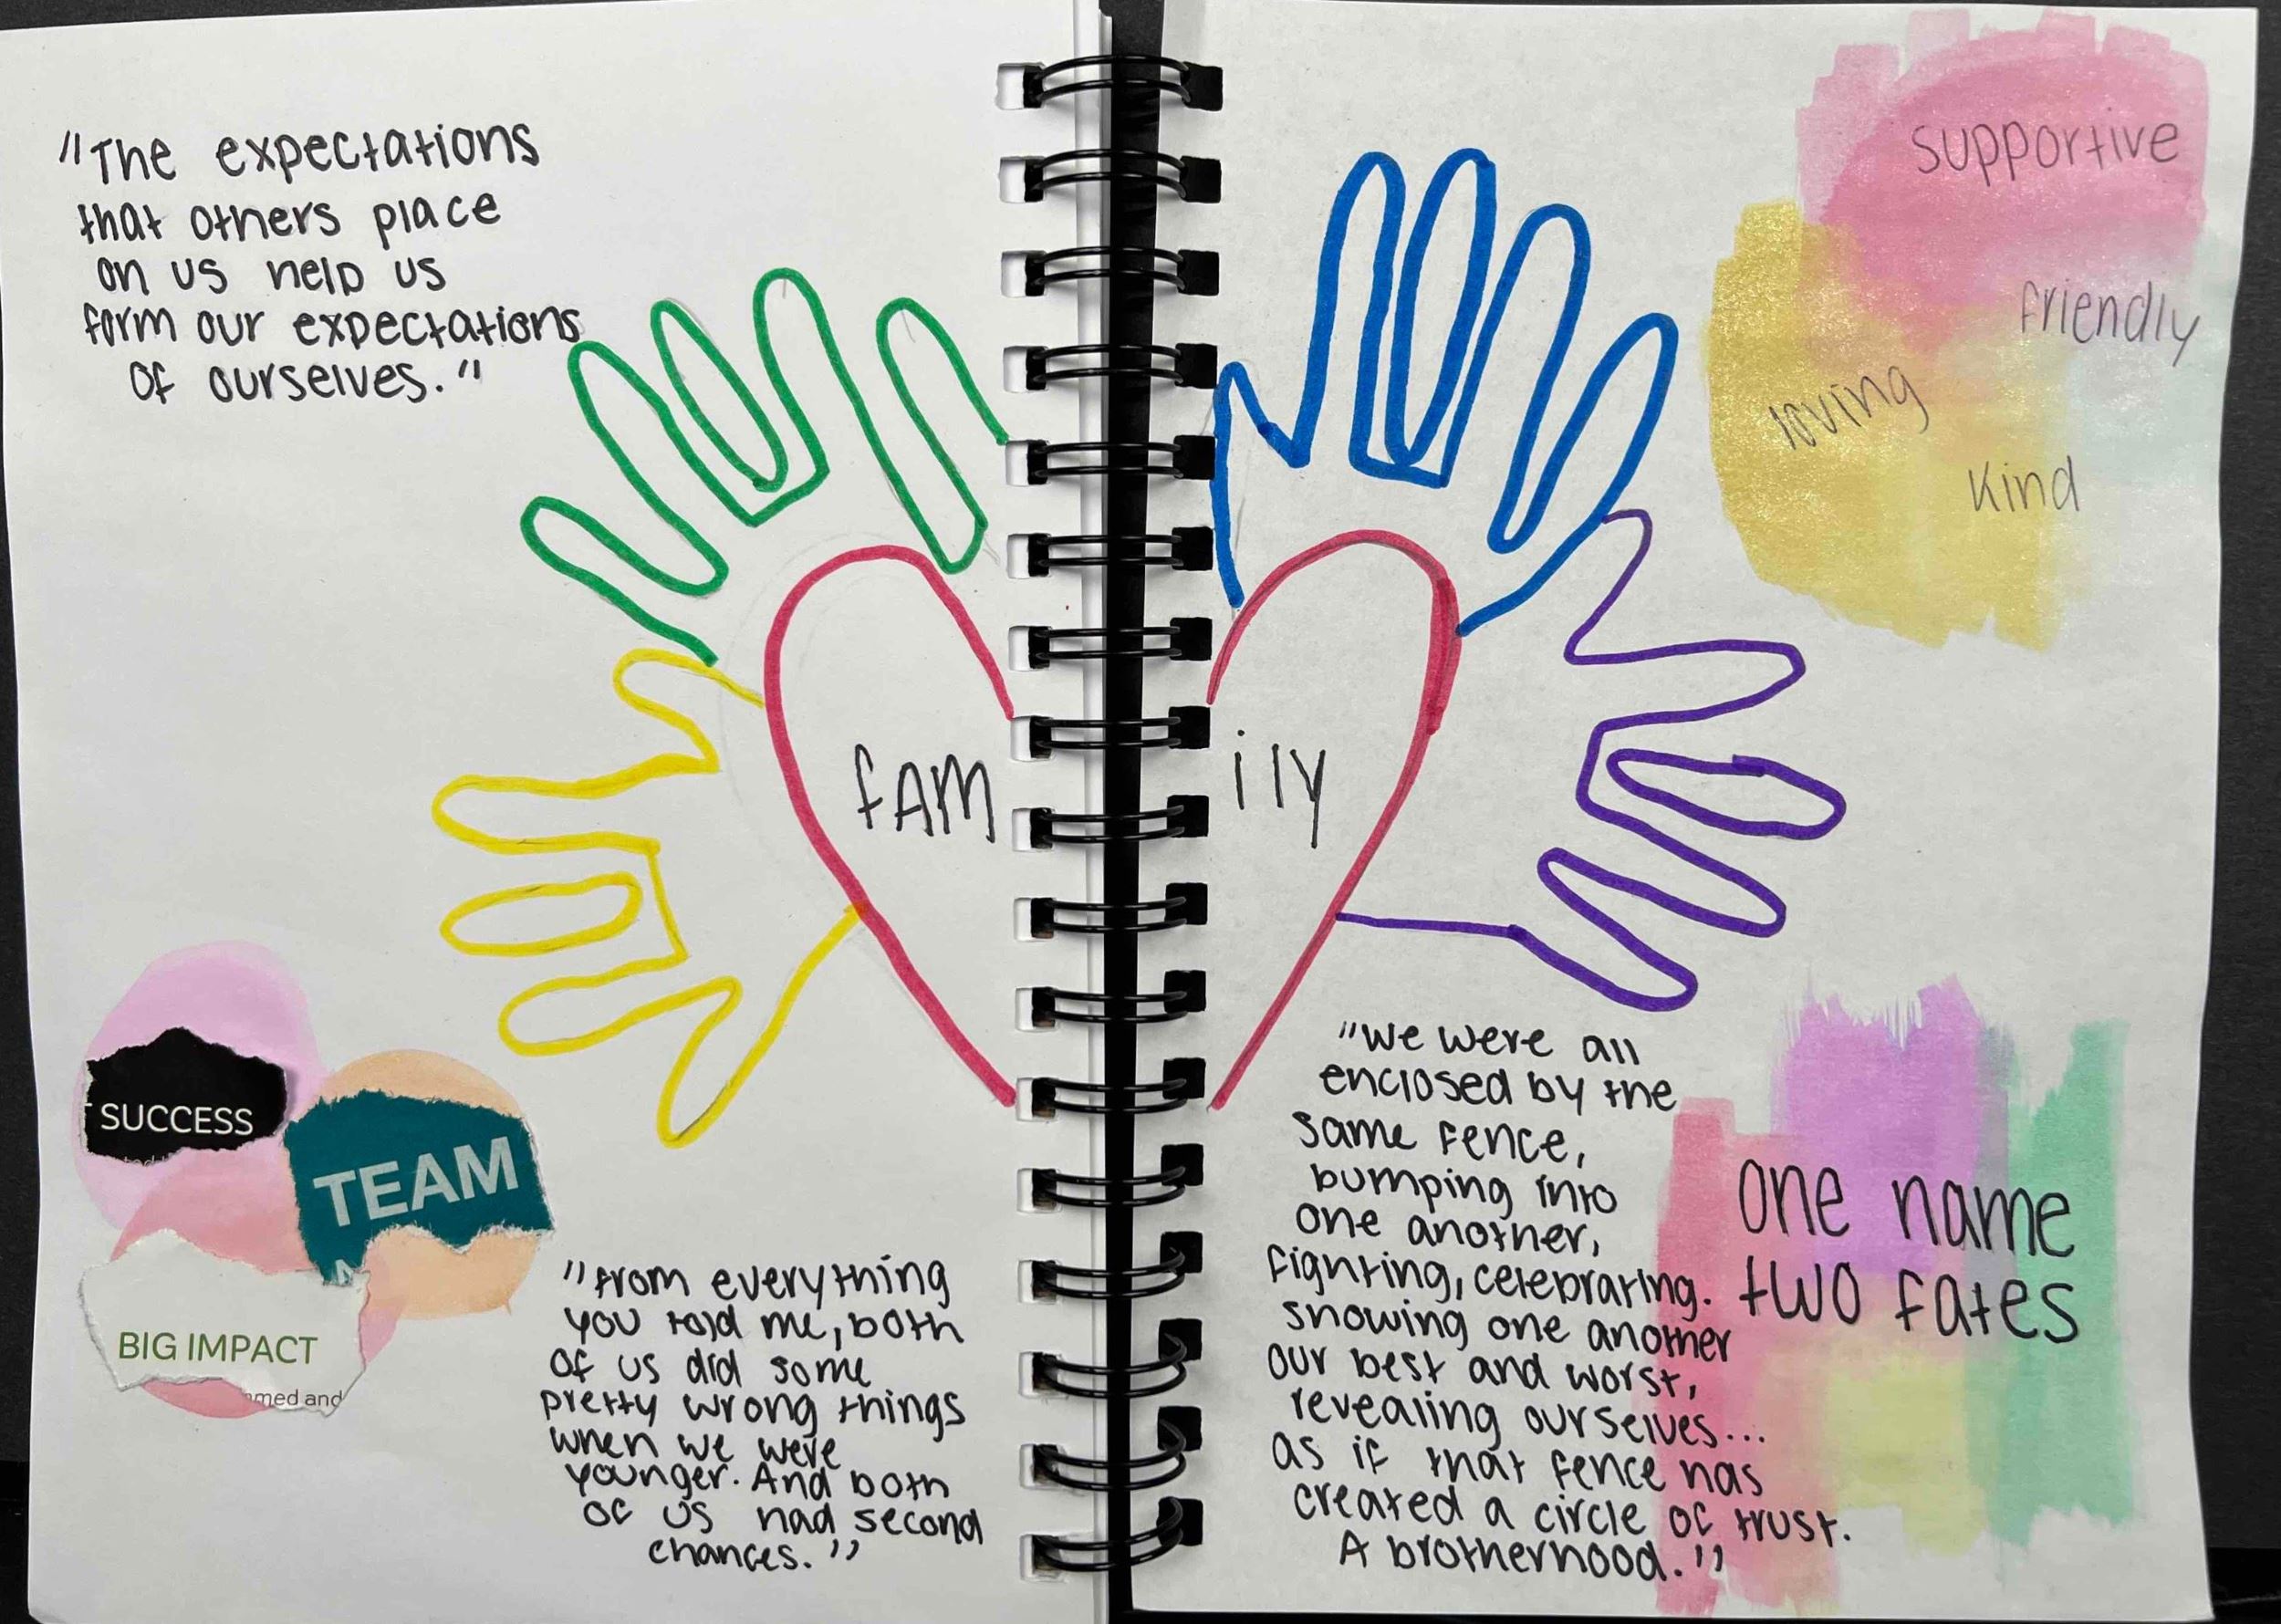 "The expectations
that others place
on us help us
form our expectations
of ourselves."
fAM
SUCCESS
TEAM
BIG IMPACT
med and
"From everything
you told me, both
of us did some
pretty wrong things
when we were
younger. And both
of us had second
chances."
supportive
friendly
loving
kind
ily
"We were all
enclosed by the
same fence,
bumping into
one another,
fighting, celebrating.
showing one another
our best and worst,
revealing ourselves...
as if that fence has
created a circle of trust.
A brotherhood."
one name
two fates